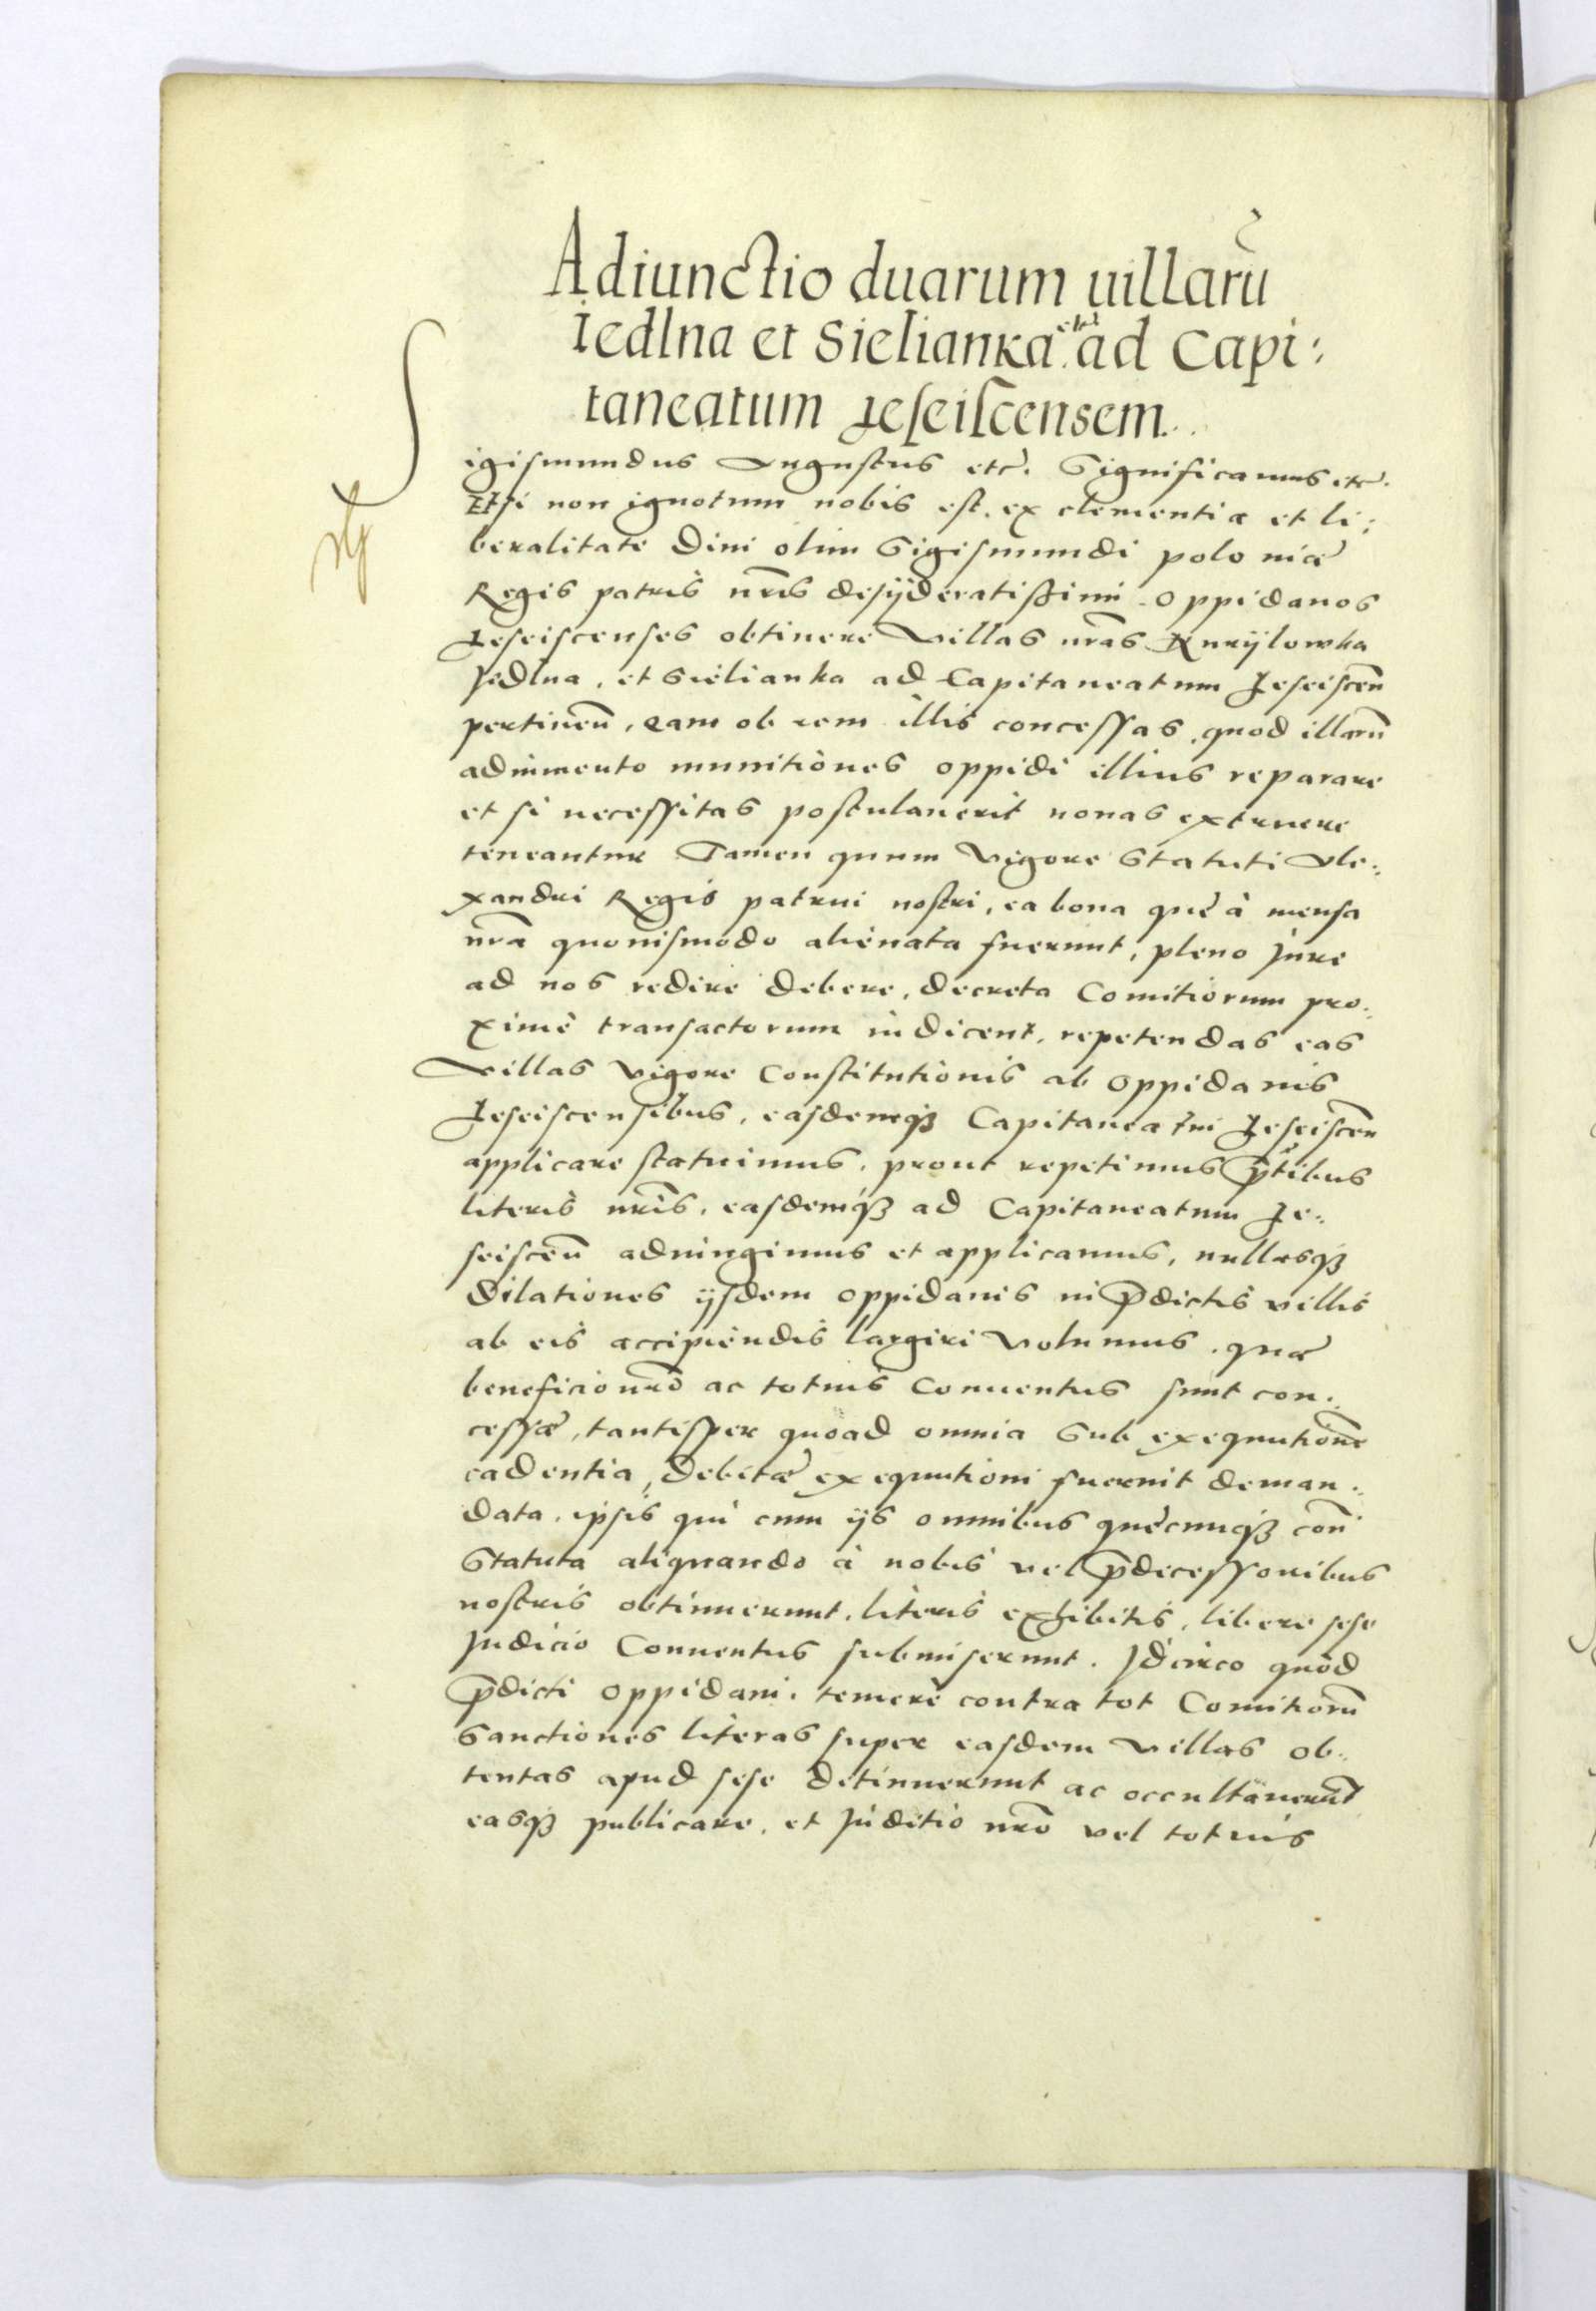 Adiunctio duarum uillarū
Iedlna et Sielianka ad Capi:
taneatum Ieseiscensem.
Sigismundus Augustus etc. Significamus etc.
Etsi non ignotum nobis est, ex clementia et li:
beralitate Diui olim Sigismundi poloniæ
Regis patris nr̄is desyderatissimi Oppidanos
Jeseiscenses obtinere villas nr̄as Kuryłowka
Jedlna, et Sielianka ad Capitaneatum Jeseiscen̄
pertinen̄, eam ob rem illis concessas, quod illarū
adiumento munitiones oppidi illius reparare
et si necessitas postulauerit nouas extruere
teneantur Tamen quum vigore Statuti Ale:
xandri Regis patrui nostri, ea bona quę à mensa
nr̄a quouismodo alienata fuerunt, pleno Jure
ad nos redire debere, decreta Comitiorum pro:
ximè transactorum indicent, repetendas eas
villas vigore Constitutionis ab oppidanis
Jeseiscensibus, easdemqȝ Capitaneatui Jeseiscen̄
applicare statuimus, prout repetimus p̄ntibus
literis nr̄is, easdemqȝ ad Capitaneatum Je:
seiscen̄ adiungimus et applicamus, nullasqȝ
dilationes ijsdem oppidanis in p̄dictis villis
ab eis accipiendis largiri volumus, quæ
beneficio nr̄o ac totius Conuentus sunt con:
cessæ, tantisper quoad omnia sub exequutionē
cadentia, debitæ exequutioni fuerint deman:
data, ipsis qui cum ijs omnibus quęcunqȝ con̄
Statuta aliquando à nobis vel p̄decessoribus
nostris obtinuerunt, literis exhibitis, libere sese
Judicio Conuentus submiserunt. Idcirco quòd
p̄dicti oppidani, temerè contra tot Comitiorū
Sanctiones literas super easdem villas ob:
tentas apud sese detinuerunt ac occultauerūt
easqȝ publicare, et Juditio nr̄o vel totius